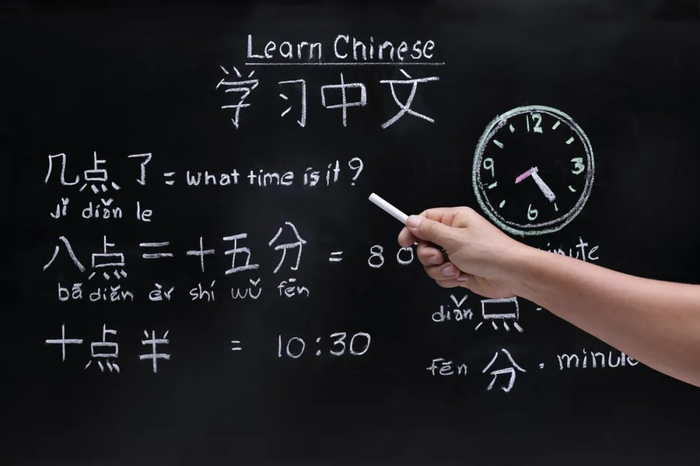 Learn Chinese
学习中文
几点了 = what time is it?
jǐ diǎn le
八点二十五分 = 8
bā diǎn èr shí wǔ fēn
十点半 = 10:30
12
3
6
9
diǎn 点
fēn 分 . minute